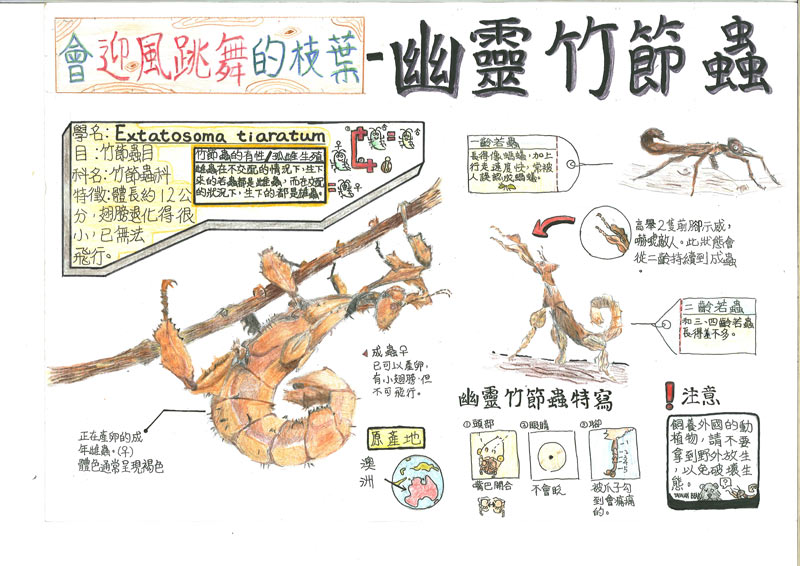 會迎風跳舞的枝葉-幽靈竹節蟲
學名:Extatosoma tiaratum
目:竹節蟲目
科名:竹節蟲科
特徵:體長約12公
分,翅膀退化得很
小,已無法
飛行。
竹節蟲的有性/孤雌生殖
雌蟲在不交配的情況下,生下
來的若蟲都是雌蟲,而在交配
的狀況下,生下的都是雄蟲。
一齡若蟲
長得像螞蟻,加上
行走速度快,常被
人誤認成螞蟻。
高舉2隻前腳示威,
嚇唬敵人。此狀態會
從二齡持續到成蟲
。
二齡若蟲
和三、四齡若蟲
長得差不多。
成蟲♀
已可以產卵,
有小翅膀,但
不可飛行。
正在產卵的成
年雌蟲。(♀)
體色通常呈現褐色
原產地
澳
洲
幽靈竹節蟲特寫
①頭部
嘴巴開合
②眼睛
不會眨
③腳
被爪子勾
到會痛痛
的。
!注意
飼養外國的動
植物,請不要
拿到野外放生
,以免破壞生
態。
TAIWAN BEAR